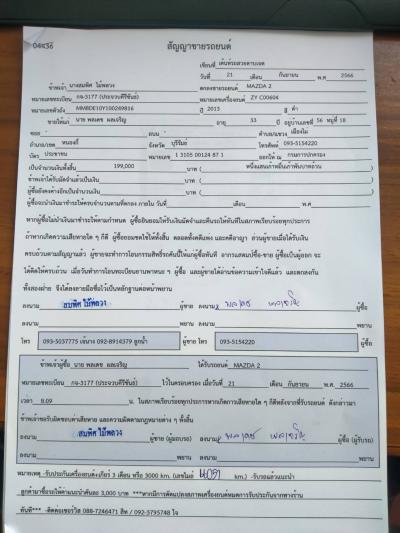 04456
สัญญาขายรถยนต์
เขียนที่ เต็นท์รถสวยตาบเจต
วันที่ 21 เดือน กันยายน พ.ศ. 2566
ข้าพเจ้า นางสมพิศ ไม้พลวง ตกลงขายรถยนต์ MAZDA 2
หมายเลขทะเบียน กจ-3177 (ประจวบคีรีขันธ์) หมายเลขเครื่องยนต์ ZY C00604
หมายเลขตัวถัง MM8DE10Y100249816 ปี 2013 สี ดำ
ขายให้แก่ นาย พลเดช ผลเจริญ อายุ 33 ปี อยู่บ้านเลขที่ 56 หมู่ที่ 18
ซอย - ถนน - ตำบล/แขวง เมืองไผ่
อำเภอ/เขต หนองกี่ จังหวัด บุรีรัมย์ โทรศัพท์ 093-5154220
บัตร ประชาชน หมายเลข 1 3105 00124 87 1 ออกให้ ณ กรมการปกครอง
เป็นจำนวนเงินทั้งสิ้น 199,000 บาท ( หนึ่งแสนเก้าหมื่นเก้าพันบาทถ้วน )
ข้าพเจ้าได้รับมัดจำแล้วเป็นเงิน บาท ( )
ผู้ซื้อยังคงค้างอีกเป็นจำนวนเงิน บาท ( )
ผู้ซื้อจะนำเงินมาชำระให้ครบจำนวนตามที่ตกลง ภายใน วันที่ เดือน พ.ศ.
หากผู้ซื้อไม่นำเงินมาชำระให้ตามกำหนด ผู้ซื้อยินยอมให้ริบเงินมัดจำและคืนรถให้ทันทีในสภาพเรียบร้อยทุกประการ
ถ้าหากเกิดความเสียหายใด ๆ ก็ดี ผู้ซื้อยอมชดใช้ให้ทั้งสิ้น ตลอดทั้งคดีแพ่ง และคดีอาญา ส่วนผู้ขายเมื่อได้รับเงิน
ครบถ้วนตามสัญญาแล้ว ผู้ขายจะทำการโอนกรรมสิทธิ์รถคันนี้ให้แก่ผู้ซื้อทันที อากรแสตมป์ซื้อ-ขาย ผู้ซื้อเป็นผู้ออก จะ
ได้คิดให้ครบถ้วน เมื่อวันทำการโอนทะเบียนยานพาหนะ ฯ ผู้ซื้อ และผู้ขายได้อ่านข้อความเข้าใจดีแล้ว และตกลงกัน
ทั้งสองฝ่าย จึงได้ลงลายมือชื่อไว้เป็นหลักฐานต่อหน้าพยาน
ลงนาม สมพิศ ไม้พลวง ผู้ขาย ลงนาม พลเดช ผลเจริญ ผู้ซื้อ
ลงนาม ผู้ขาย ลงนาม ผู้ซื้อ
โทร 093-5037775 092-8914379 ลูกน้ำ ผู้ขาย โทร 093-5154220 ผู้ซื้อ
ข้าพเจ้าผู้ซื้อ นาย พลเดช ผลเจริญ ได้รับรถยนต์ MAZDA 2
หมายเลขทะเบียน กจ-3177 (ประจวบคีรีขันธ์) ไว้ในครอบครอง เมื่อวันที่ 21 เดือน กันยายน พ.ศ. 2566
เวลา 8.09 น. ในสภาพเรียบร้อยทุกประการหากเกิดการเสียหายใด ๆ ก็ดีหลังจากที่รับรถยนต์ ดังกล่าวมา
ข้าพเจ้าขอรับผิดชอบค่าเสียหาย และความผิดตามกฎหมายต่าง ๆ ทั้งสิ้น
ลงนาม สมพิศ ไม้พลวง ผู้ขาย (ผู้มอบรถ) ลงนาม พลเดช ผลเจริญ ผู้ซื้อ (ผู้รับรถ)
ลงนาม พยาน ลงนาม พยาน
หมายเหตุ -รับประกันเครื่องยนต์/เกียร์ 3 เดือน หรือ 3000 km. (เลขไมล์ km.) -รับรถแล้วแนะนำ
ลูกค้ามาซื้อรถให้ค่าแนะนำคันละ 3,000 บาท ***หากมีการดัดแปลงสภาพเครื่องยนต์หมดการรับประกันจากทางร้าน
ทันที*** -ติดต่อเซอร์วิส 088-7246471 สิท / 092-3795748 ใจ